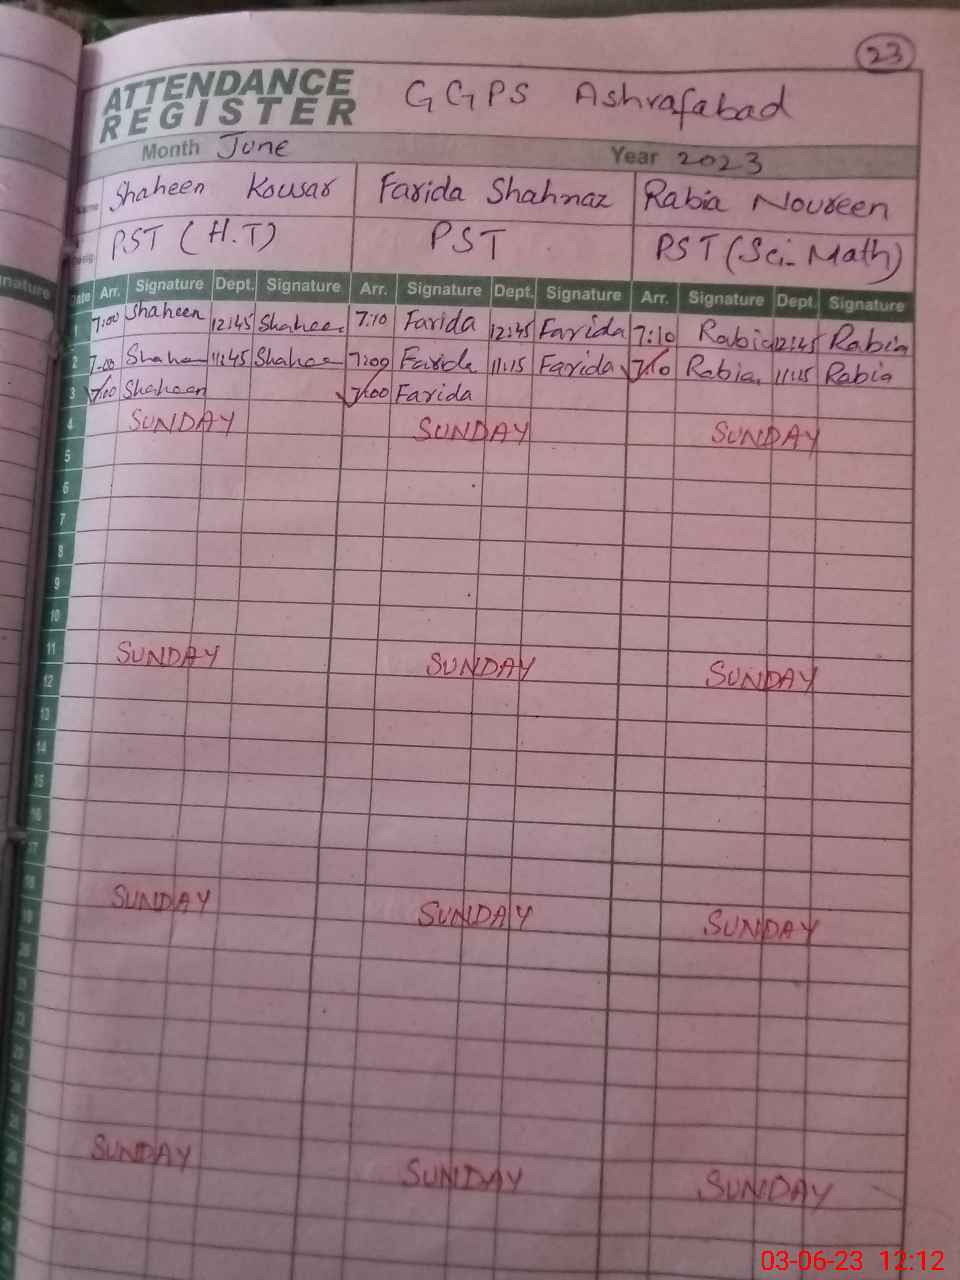 23
ATTENDANCE REGISTER GGPS Ashrafabad
Month June Year 2023
Name Shaheen Kousar Farida Shahnaz Rabia Noureen
PST (H.T) PST PST (Sci-Math)
Date Arr. Signature Dept. Signature Arr. Signature Dept. Signature Arr. Signature Dept. Signature
1 7:00 Shaheen 12:45 Shaheen 7:10 Farida 12:45 Farida 7:10 Rabia 12:45 Rabia
2 7:00 Shaheen 11:45 Shaheen 7:09 Farida 11:15 Farida 7:10 Rabia 11:15 Rabia
3 7:00 Shaheen 7:00 Farida
4 SUNDAY SUNDAY SUNDAY
5
6
7
8
9
10
11 SUNDAY SUNDAY SUNDAY
12
13
14
15
16
17
18 SUNDAY SUNDAY SUNDAY
19
20
21
22
23
24
25 SUNDAY SUNDAY SUNDAY
26
27
28
03-06-23 12:12